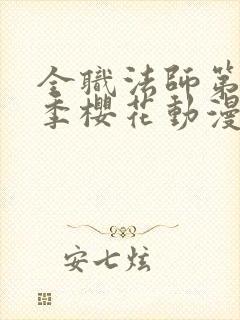 全職法師第
季櫻花動漫
安七炫